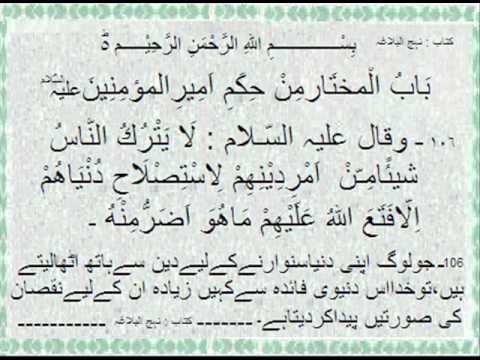 کتاب : نہج البلاغہ
بِسْـــــــمِ اللهِ الرَّحْمَنِ الرَّحِیْـــمِ ۃ
بَابُ الْمختَارِ مِنْ حِكَمِ اَمِیرِالمؤمِنِینَ عَلَیْہِ السَّلام
۱۰۶ ـ وقال علیہ السّلام : لَا یَتْرُكُ النَّاسُ
شیئًامِـّنْ اَمْرِدِیْنِهِمْ لِاسْتِصْلَاحِ دُنْیَاهُمْ
اِلّافَتَعَ اللهُ عَلَیْهِمْ مَاهُوَ اَضَرُّمِنْهُ ـ
106۔جولوگ اپنی دنیاسنوارنےکےلیےدین سےہاتھ اٹھالیتے
ہیں،توخدااس دنیوی فائدہ سےکہیں زیادہ ان کےلیےنقصان
کی صورتیں پیداکردیتاہے۔ــــــــ کتاب : نہج البلاغہ ــــــــــــــــــــ